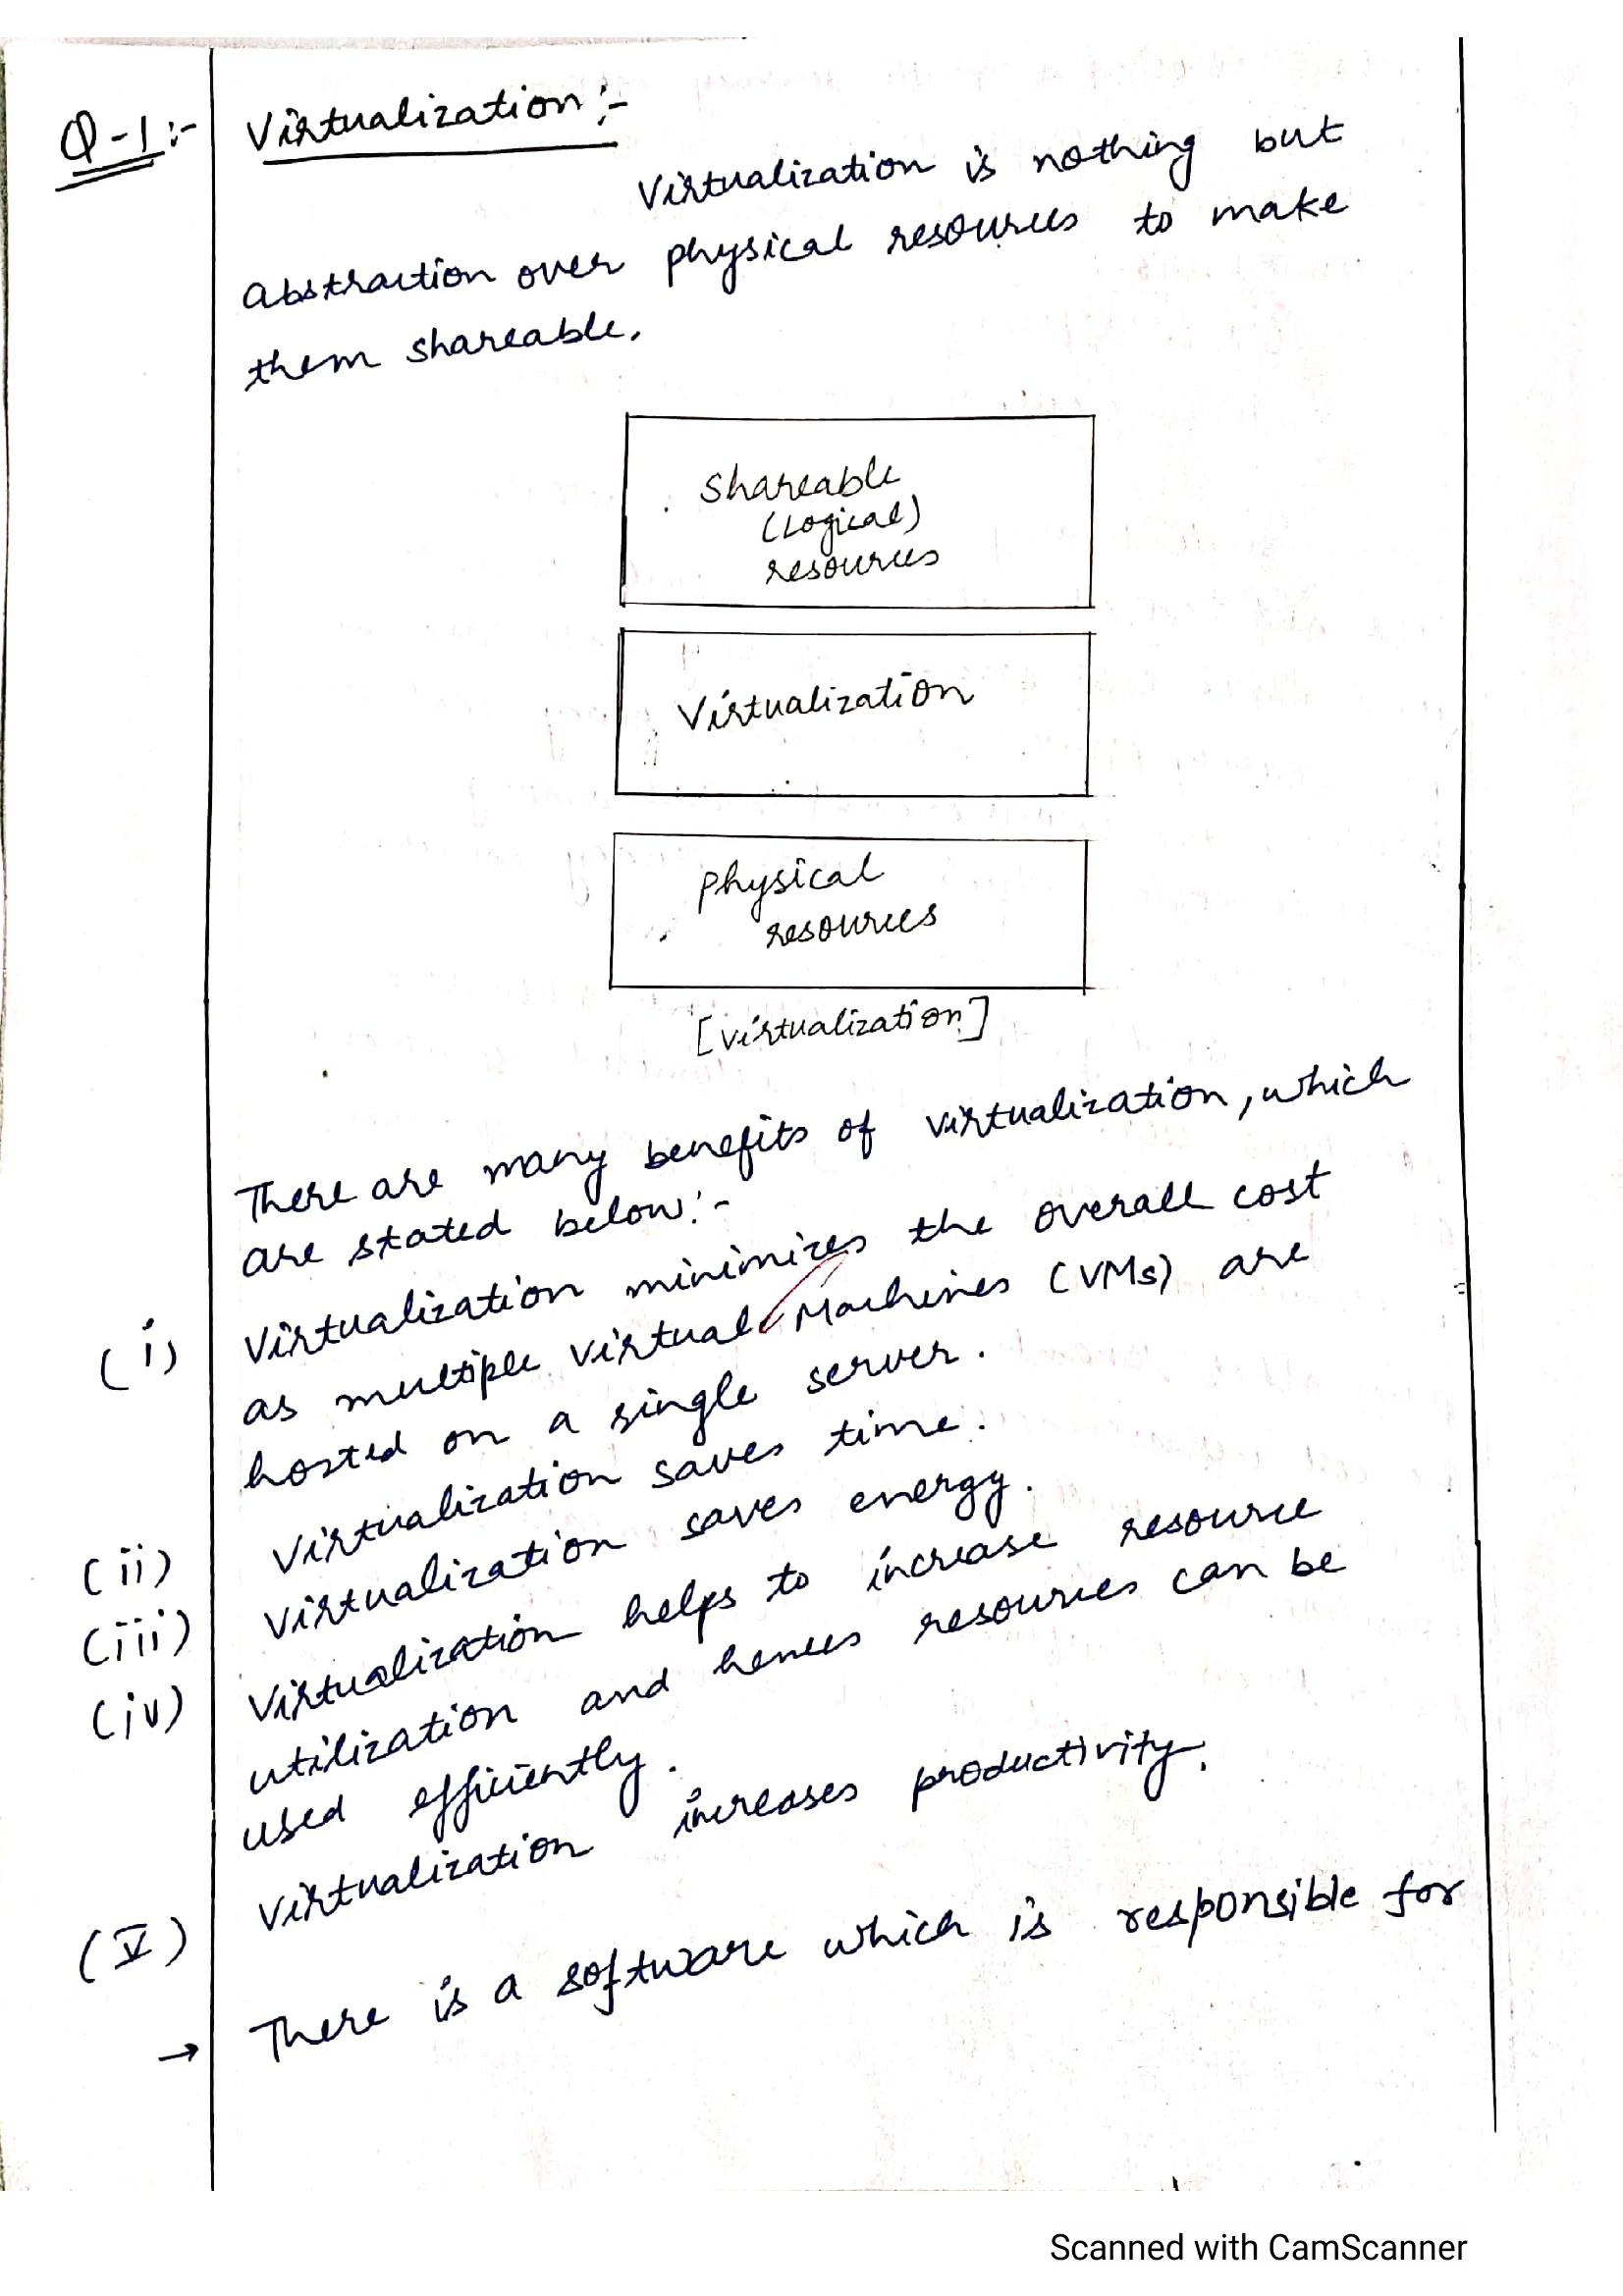 Q-1:- Virtualization:-
Virtualization is nothing but
abstraction over physical resources to make
them shareable.
Shareable
(Logical)
resources
Virtualization
Physical
resources
[Virtualization]
There are many benefits of virtualization, which
are stated below:-
(i) Virtualization minimizes the overall cost
as multiple Virtual Machines (VMs) are
hosted on a single server.
(ii) Virtualization saves time.
(iii) Virtualization saves energy.
(iv) Virtualization helps to increase resource
utilization and hences resources can be
used efficiently.
(V) Virtualization increases productivity.
→ There is a software which is responsible for
Scanned with CamScanner